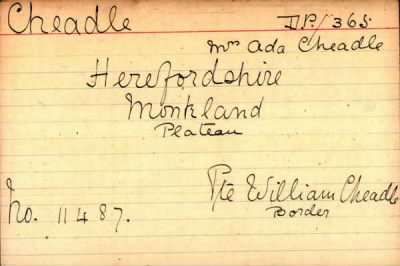 Cheadle
D.P./365
Mrs Ada Cheadle
Herefordshire
Monkland
Plateau
Pte William Cheadle
Border
No. 11487.